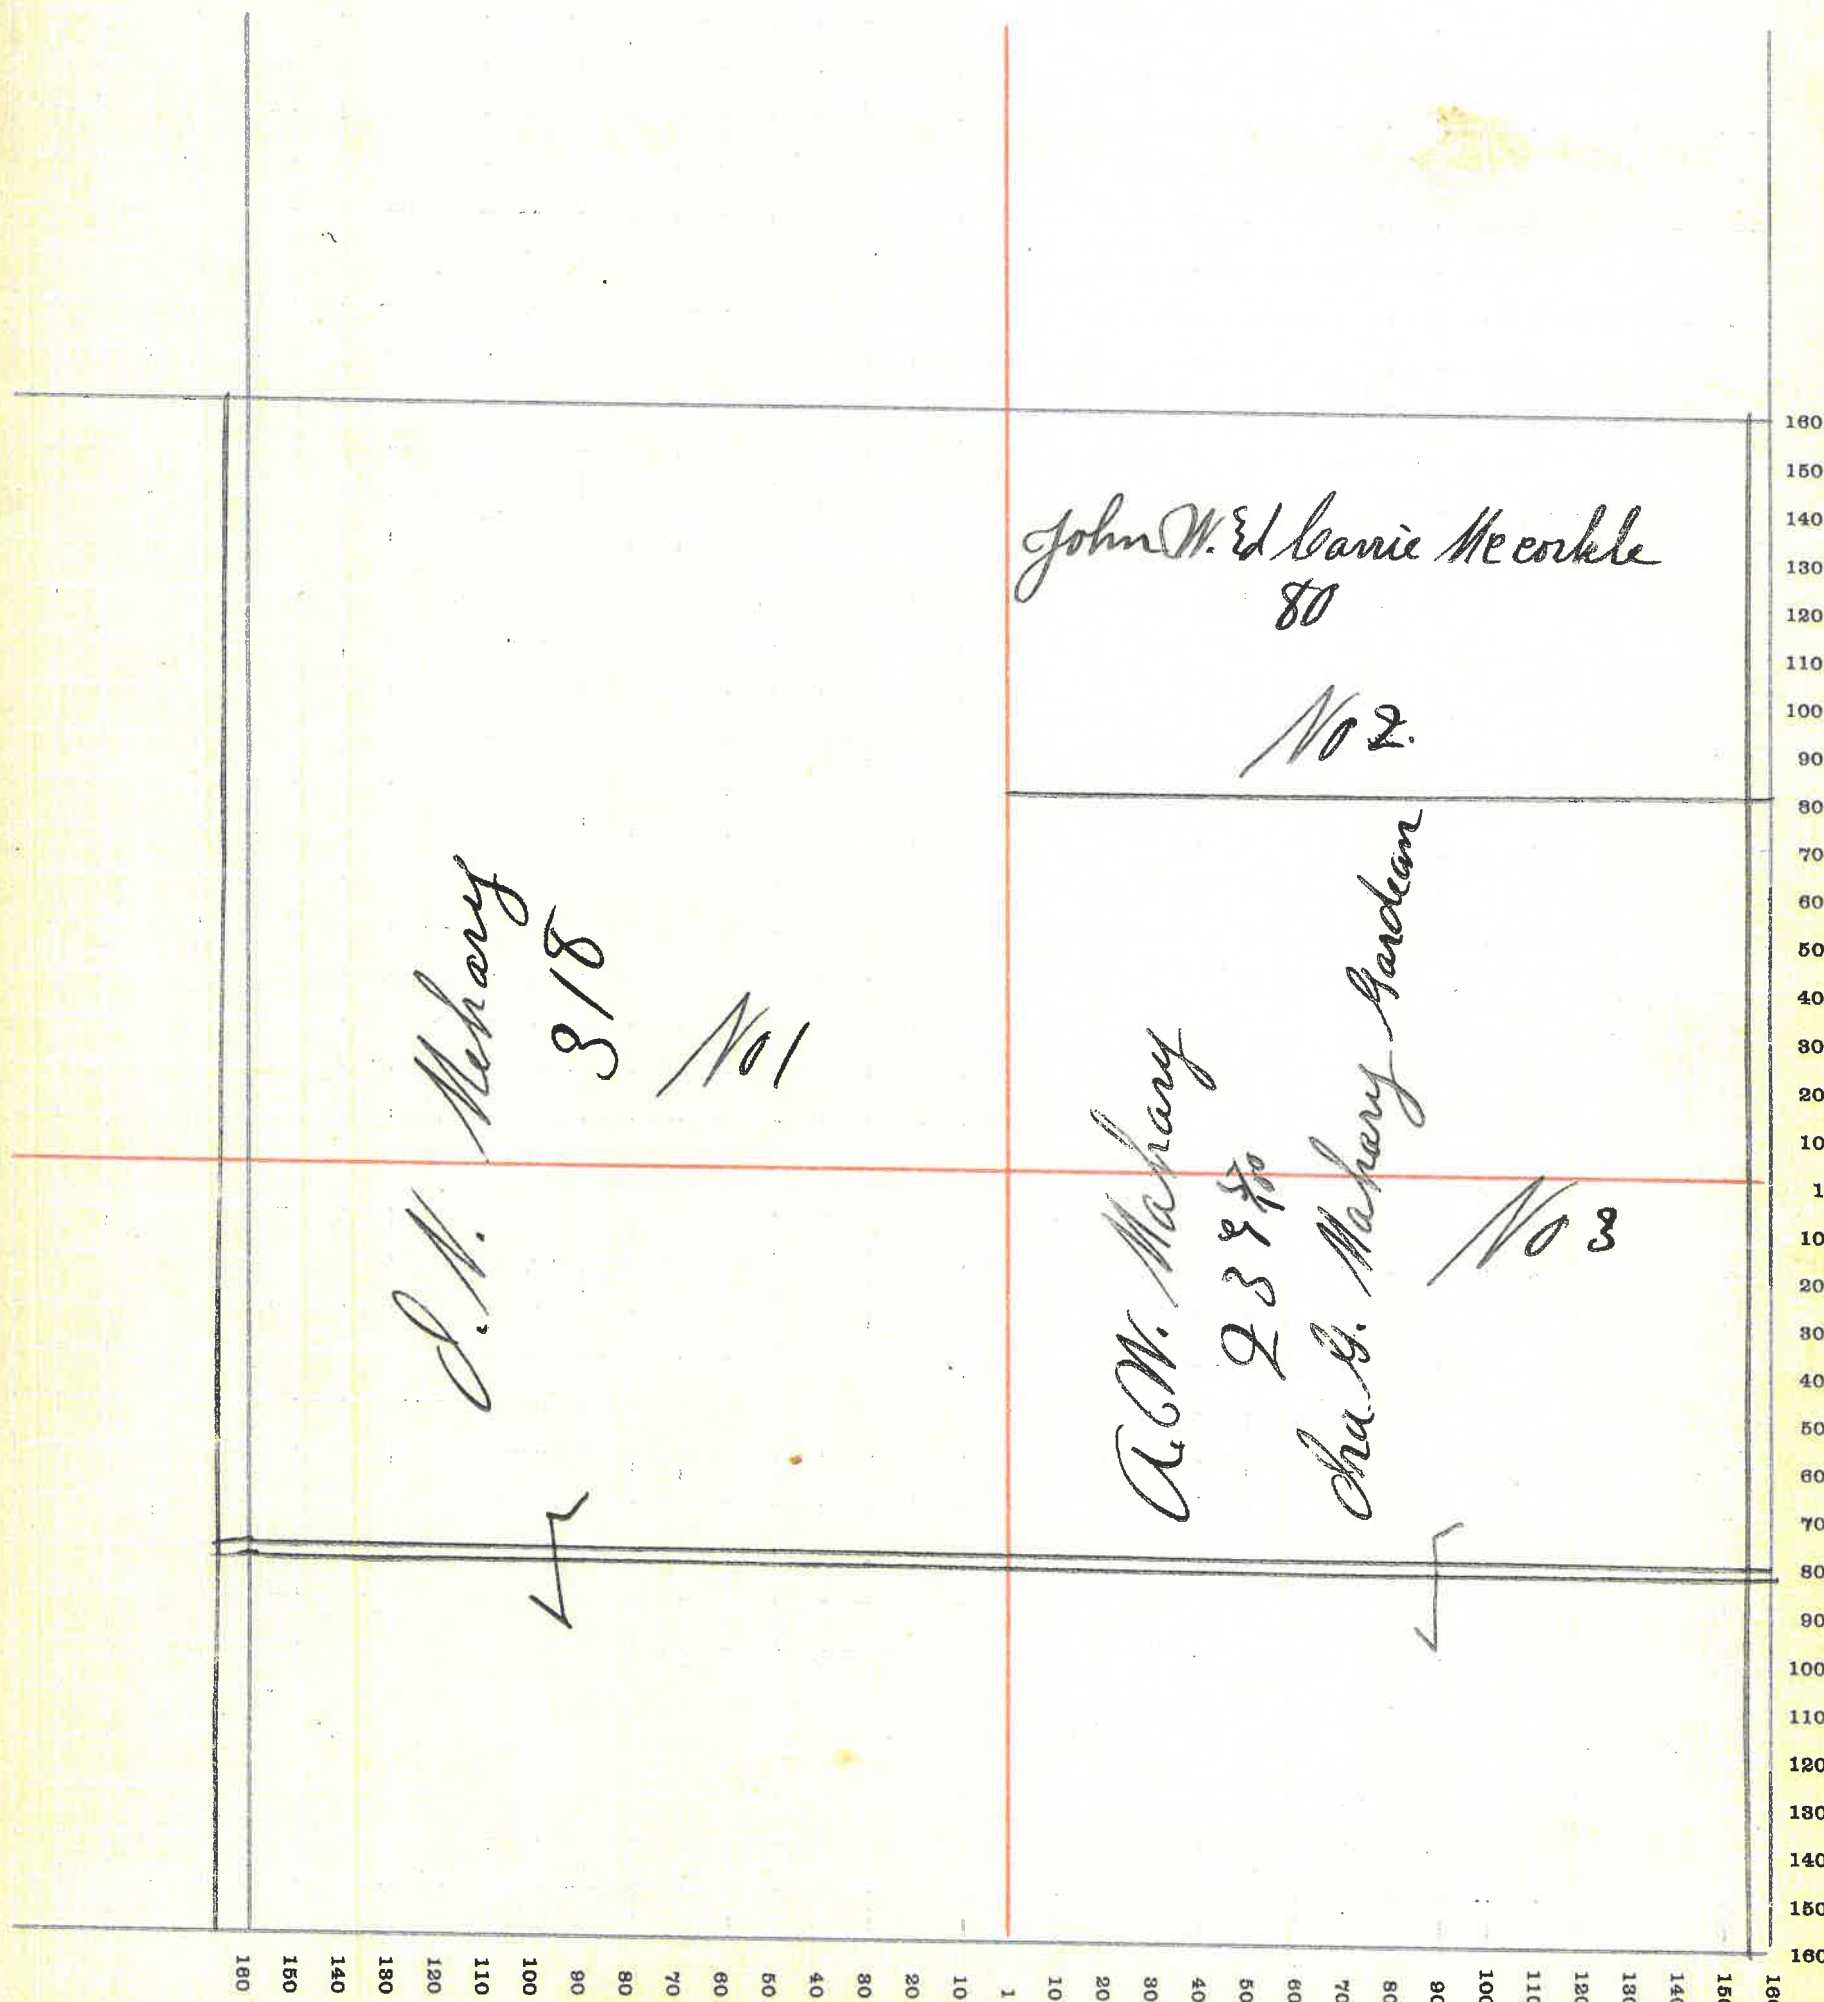 John W. Ed Carrie Mccorkle
80
No 2.
J. N. Mehary
318
No 1
A. W. Mahary
239 5/100
Ira G. Mahary Gardean
No 3
160
150
140
130
120
110
100
90
80
70
60
50
40
30
20
10
1
10
20
30
40
50
60
70
80
90
100
110
120
130
140
150
160
160 150 140 130 120 110 100 90 80 70 60 50 40 30 20 10 1 10 20 30 40 50 60 70 80 90 100 110 120 130 140 150 160